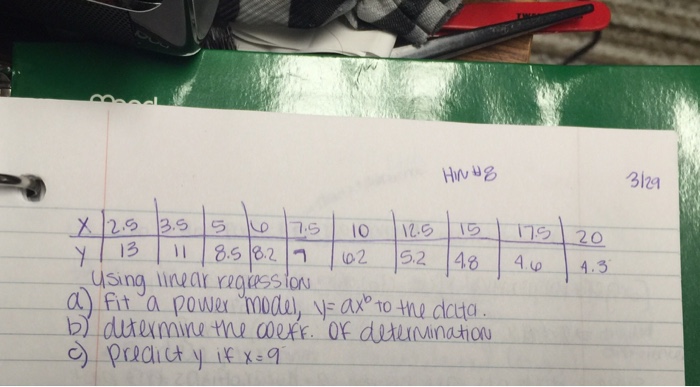 Mead
HW #8
3/29
X 2.5 3.5 5 6 7.5 10 12.5 15 17.5 20
Y 13 11 8.5 8.2 7 6.2 5.2 4.8 4.6 4.3
Using linear regression
a) Fit a power model, y=ax^b to the data.
b) determine the coeff. of determination
c) predict y if x=9